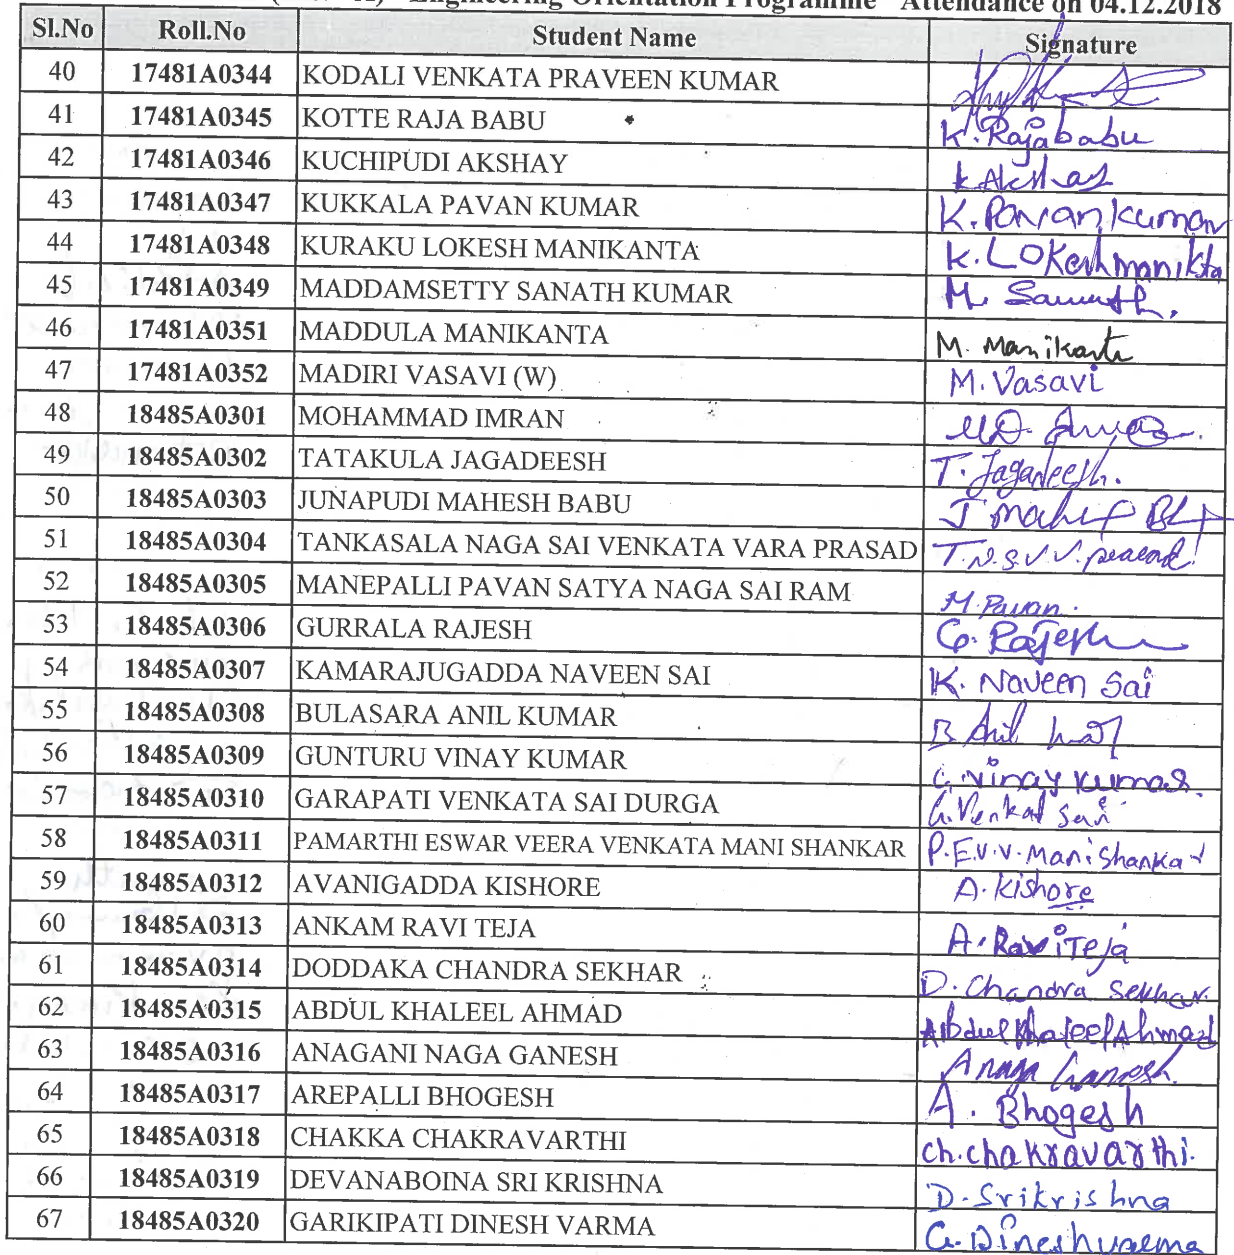 Engineering Orientation Programme Attendance on 04.12.2018
Sl.No Roll.No Student Name Signature
40 17481A0344 KODALI VENKATA PRAVEEN KUMAR
41 17481A0345 KOTTE RAJA BABU K. Rajababu
42 17481A0346 KUCHIPUDI AKSHAY K Akshay
43 17481A0347 KUKKALA PAVAN KUMAR K. Pavan kumar
44 17481A0348 KURAKU LOKESH MANIKANTA K. LOKesh manikta
45 17481A0349 MADDAMSETTY SANATH KUMAR M. Sanath.
46 17481A0351 MADDULA MANIKANTA M. Manikanta
47 17481A0352 MADIRI VASAVI (W) M. Vasavi
48 18485A0301 MOHAMMAD IMRAN MD.
49 18485A0302 TATAKULA JAGADEESH T. Jagadeesh.
50 18485A0303 JUNAPUDI MAHESH BABU J
51 18485A0304 TANKASALA NAGA SAI VENKATA VARA PRASAD T.N.S.V.V. prasad
52 18485A0305 MANEPALLI PAVAN SATYA NAGA SAI RAM M. Pavan.
53 18485A0306 GURRALA RAJESH G. Rajesh
54 18485A0307 KAMARAJUGADDA NAVEEN SAI K. Naveen Sai
55 18485A0308 BULASARA ANIL KUMAR B Anil
56 18485A0309 GUNTURU VINAY KUMAR G. Vinay kumar.
57 18485A0310 GARAPATI VENKATA SAI DURGA G. Venkat Sai
58 18485A0311 PAMARTHI ESWAR VEERA VENKATA MANI SHANKAR P.E.V.V. Mani Shankar
59 18485A0312 AVANIGADDA KISHORE A. Kishore
60 18485A0313 ANKAM RAVI TEJA A. Ravi Teja
61 18485A0314 DODDAKA CHANDRA SEKHAR D. Chandra Sekhar.
62 18485A0315 ABDUL KHALEEL AHMAD Abdul Khaleel Ahmad
63 18485A0316 ANAGANI NAGA GANESH A Naga Ganesh.
64 18485A0317 AREPALLI BHOGESH A. Bhogesh
65 18485A0318 CHAKKA CHAKRAVARTHI Ch. chakravarthi.
66 18485A0319 DEVANABOINA SRI KRISHNA D. Srikrishna
67 18485A0320 GARIKIPATI DINESH VARMA G. Dineshvarma